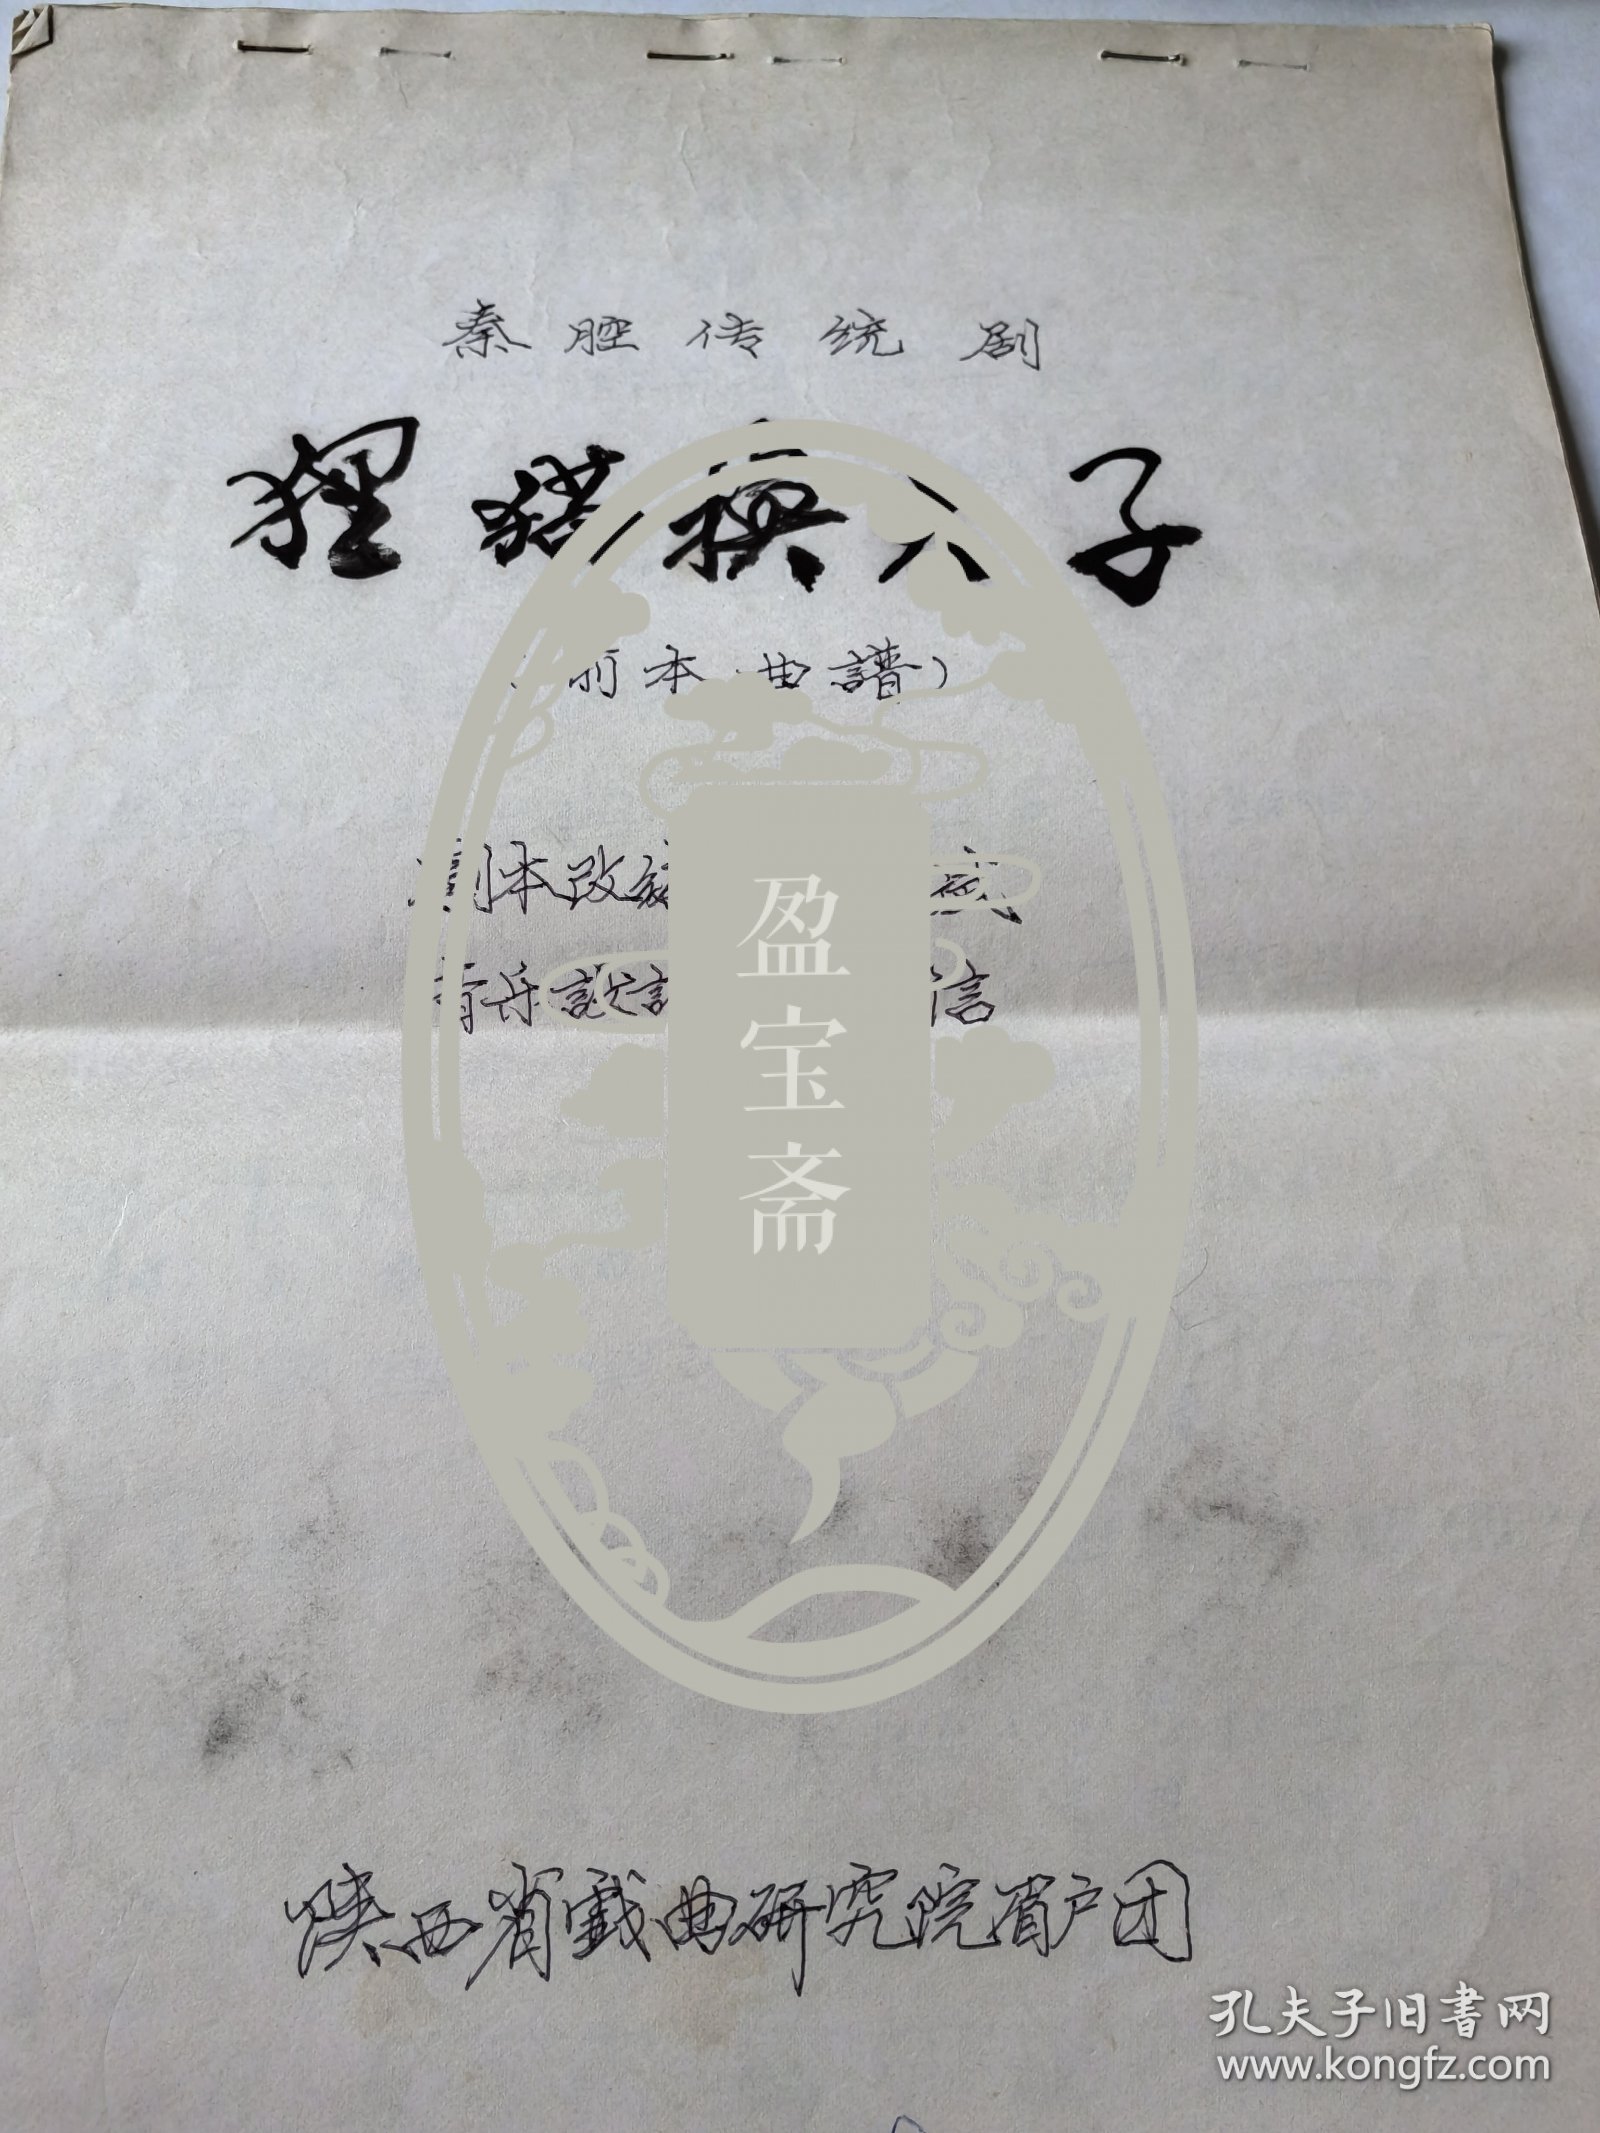 秦腔传统剧
狸猫换太子
前本 曲譜）
剧本改编
音乐設計 信
盈宝斋
陕西省戏曲研究院眉户团
孔夫子旧书网
www.kongfz.com